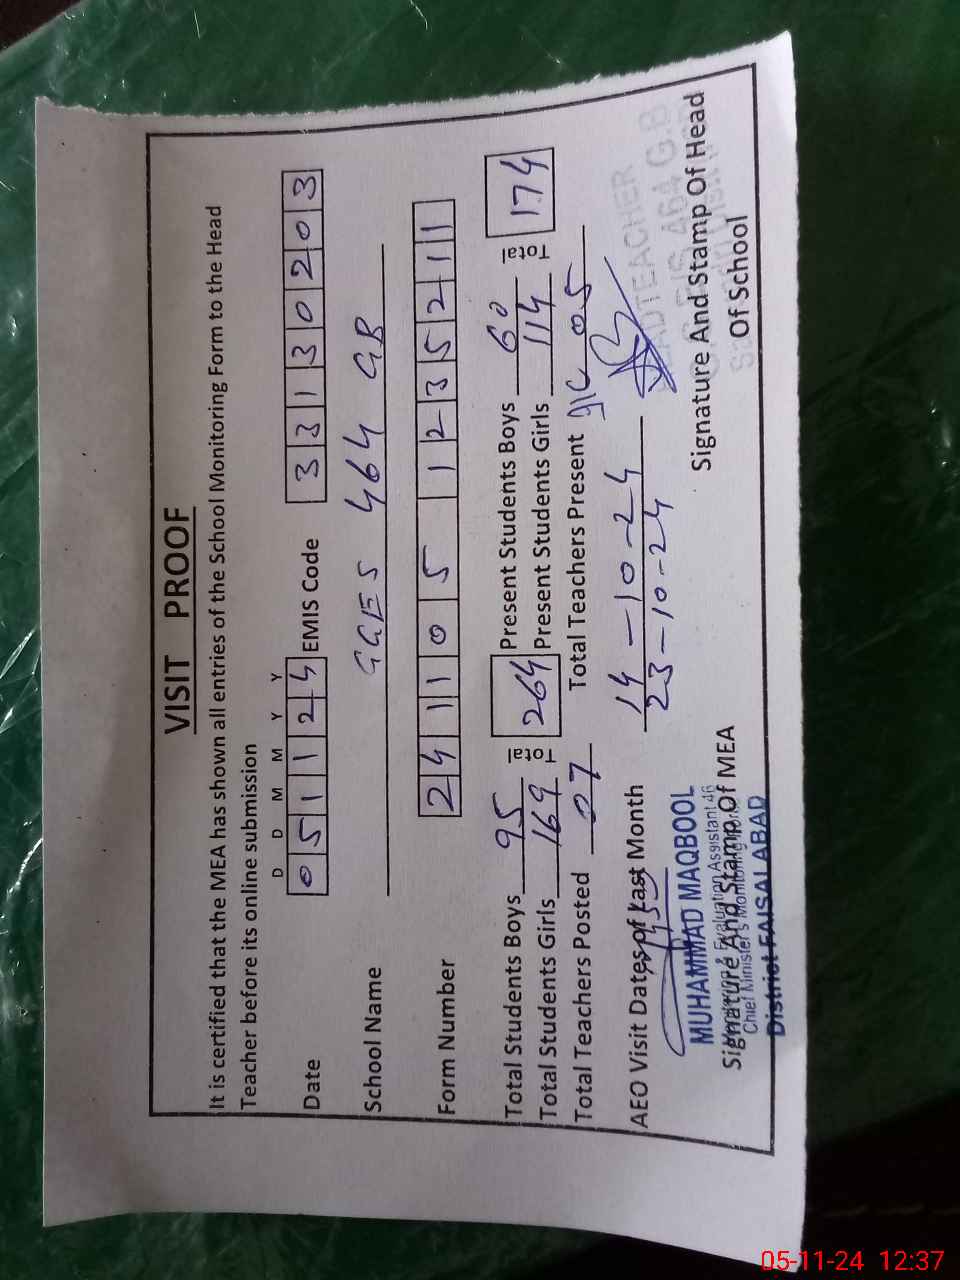 VISIT PROOF
It is certified that the MEA has shown all entries of the School Monitoring Form to the Head
Teacher before its online submission
D D M M Y Y
Date 05 11 24 EMIS Code 33130203
School Name GGES 464 GB
Form Number 241105 1235211
Total Students Boys 95 Total 264 Present Students Boys 60 Total 174
Total Students Girls 169 Present Students Girls 114
Total Teachers Posted 07 Total Teachers Present 05
AEO Visit Dates of Last Month 14-10-24
23-10-24
MUHAMMAD MAQBOOL
Monitoring & Evaluation Assistant 46
Signature And Stamp Of MEA
Chief Minister's Monitoring
District FAISALABAD
HEADTEACHER
464 G.B
Signature And Stamp Of Head
Of School
05-11-24 12:37